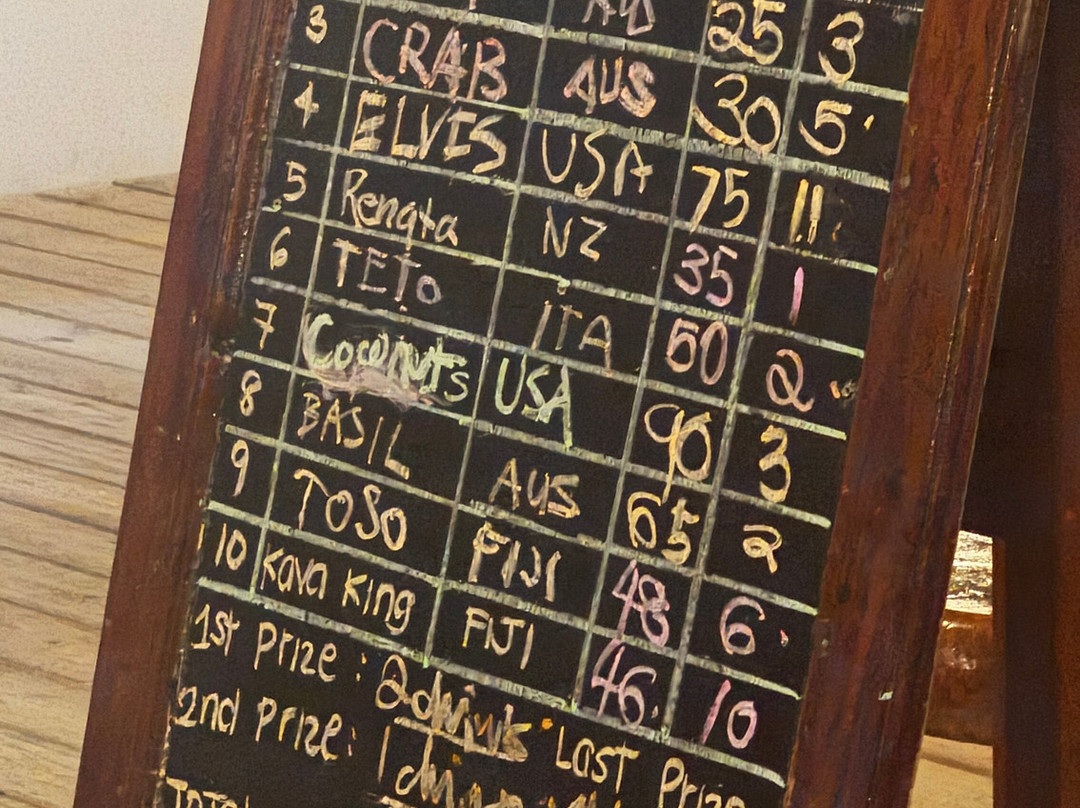 25 3
3 CRAB AUS 30 5
4 ELVIS USA 75 11
5 Renata NZ 35 1
6 TETO ITA 60 2
7 Coconuts USA 90 3
8 BASIL AUS 65 2
9 TOSO FIJI 48 6
10 Kava King FIJI 46 10
1st Prize : 2 drinks Last Prize
2nd Prize: 1